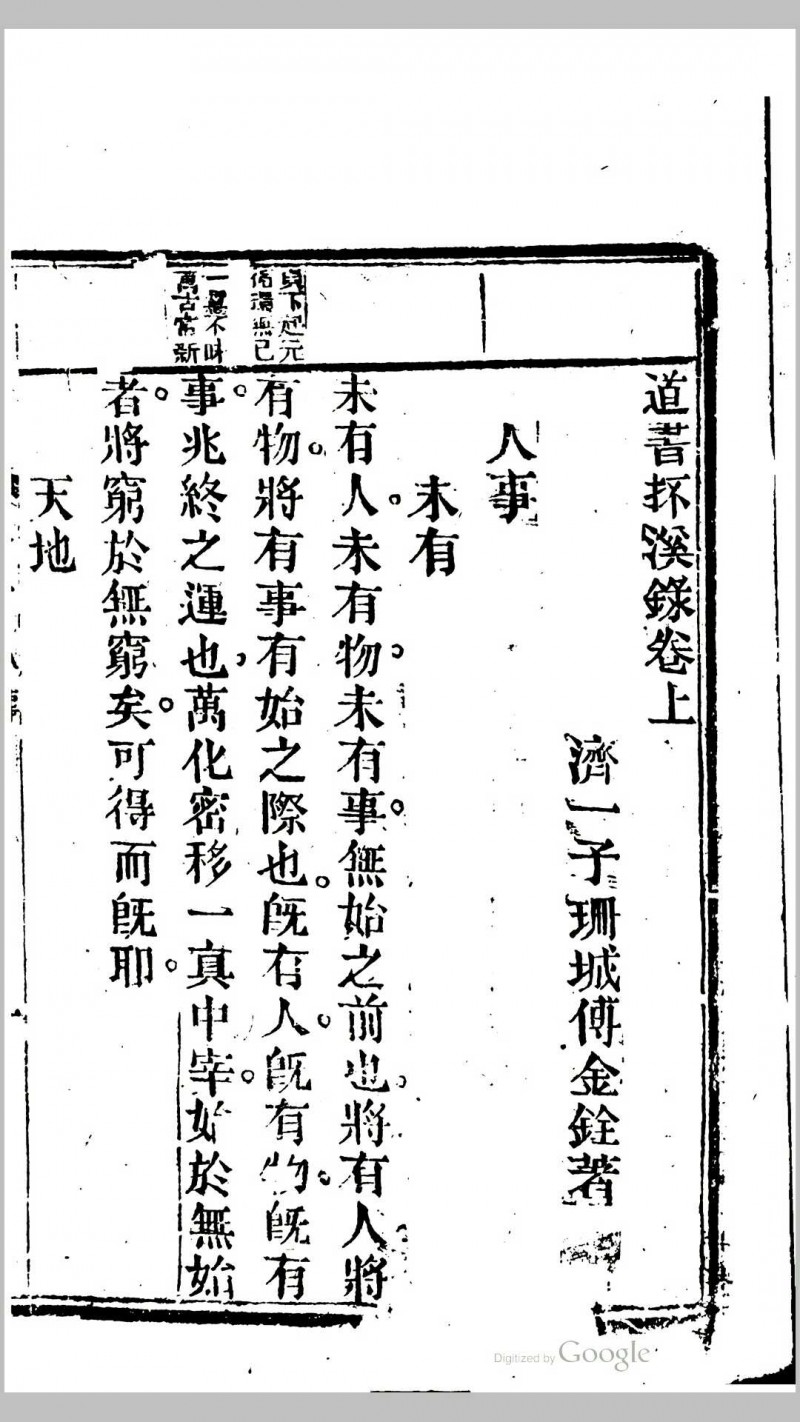 道書抔溪錄卷上
濟一子珊城傅金銓著
人事
未有
未有人。未有物。未有事。無始之前也。將有人將
有物。將有事有始之際也。既有人。既有物。既有
事。兆終之運也。萬化密移一真中宰。始於無始
者。將窮於無窮矣。可得而既耶。
天地
貞下起元
循環無已
一靈不昧
萬古常新
Digitized by Google